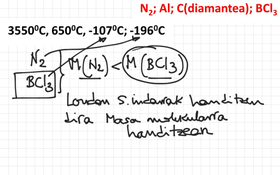 N₂; Al; C(diamantea); BCl₃
3550⁰C, 650⁰C, -107⁰C; -196⁰C
N₂ M(N₂) < M(BCl₃)
BCl₃
London I. indarrak handitzen
dira Masa molekularra
handitzean